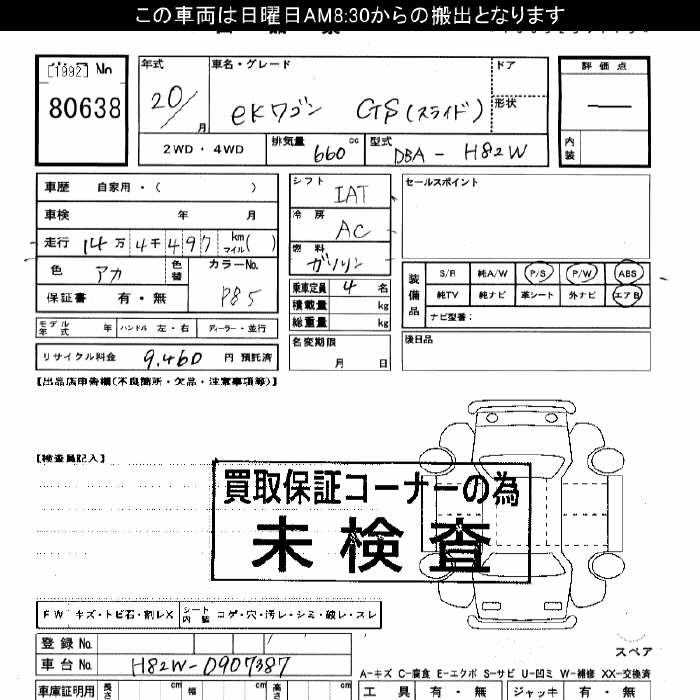 この車両は日曜日AM8:30からの搬出となります
[1992] No
80638
年式 車名・グレード ドア 評価点
20/月 eKワゴン GS(スライド) 形状 —
2WD・4WD 排気量 660 cc 型式 DBA-H82W 内装
車歴 自家用・( )
車検 年 月
走行 14万4千497 km マイル( )
色 アカ 色替 カラーNo. P85
保証書 有・無
モデル年式 年 ハンドル 左・右 ディーラー・並行
リサイクル料金 9,460 円 預託済
シフト IAT
冷房 AC
燃料 ガソリン
乗車定員 4 名
積載量 kg
総重量 kg
名変期限 月 日
セールスポイント
装備品 S/R 純A/W P/S P/W ABS
純TV 純ナビ 革シート 外ナビ エアB
ナビ型番:
後日品
【出品店申告欄(不良箇所・欠品・注意事項等)】
【検査員記入】
買取保証コーナーの為
未検査
FW キズ・トビ石・割レX シート内装 コゲ・穴・汚レ・シミ・破レ・スレ
登録No.
車台No. H82W-0907387
スペア
A-キズ C-腐食 E-エクボ S-サビ U-凹ミ W-補修 XX-交換済
車庫証明用 長さ cm 幅 cm 高さ cm
工具 有・無 ジャッキ 有・無